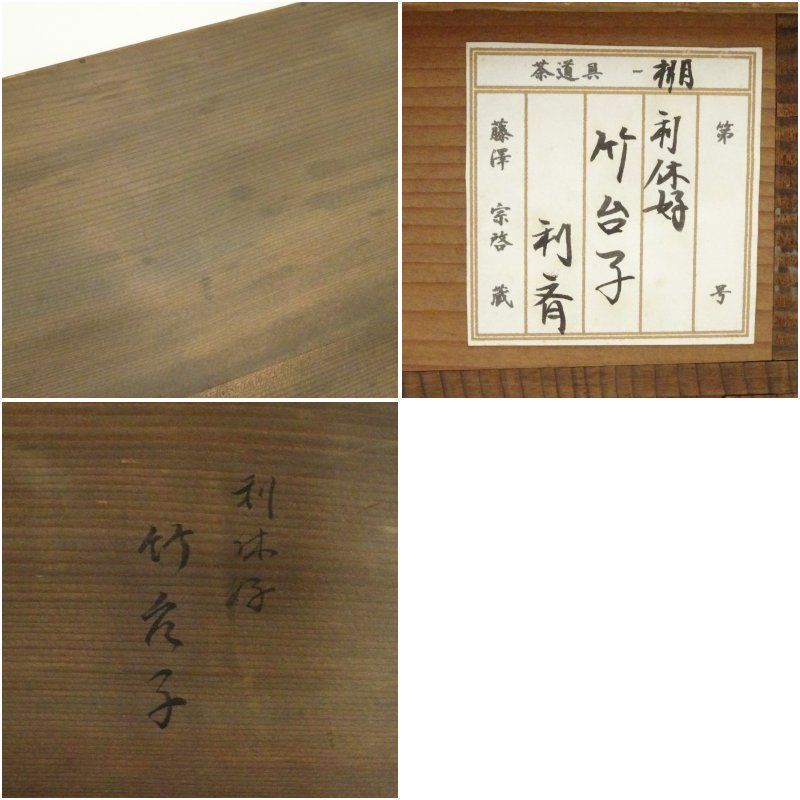 茶道具 一 棚
第 号
利休好
竹台子
利斉
藤澤 宗啓 蔵
利休好
竹台子